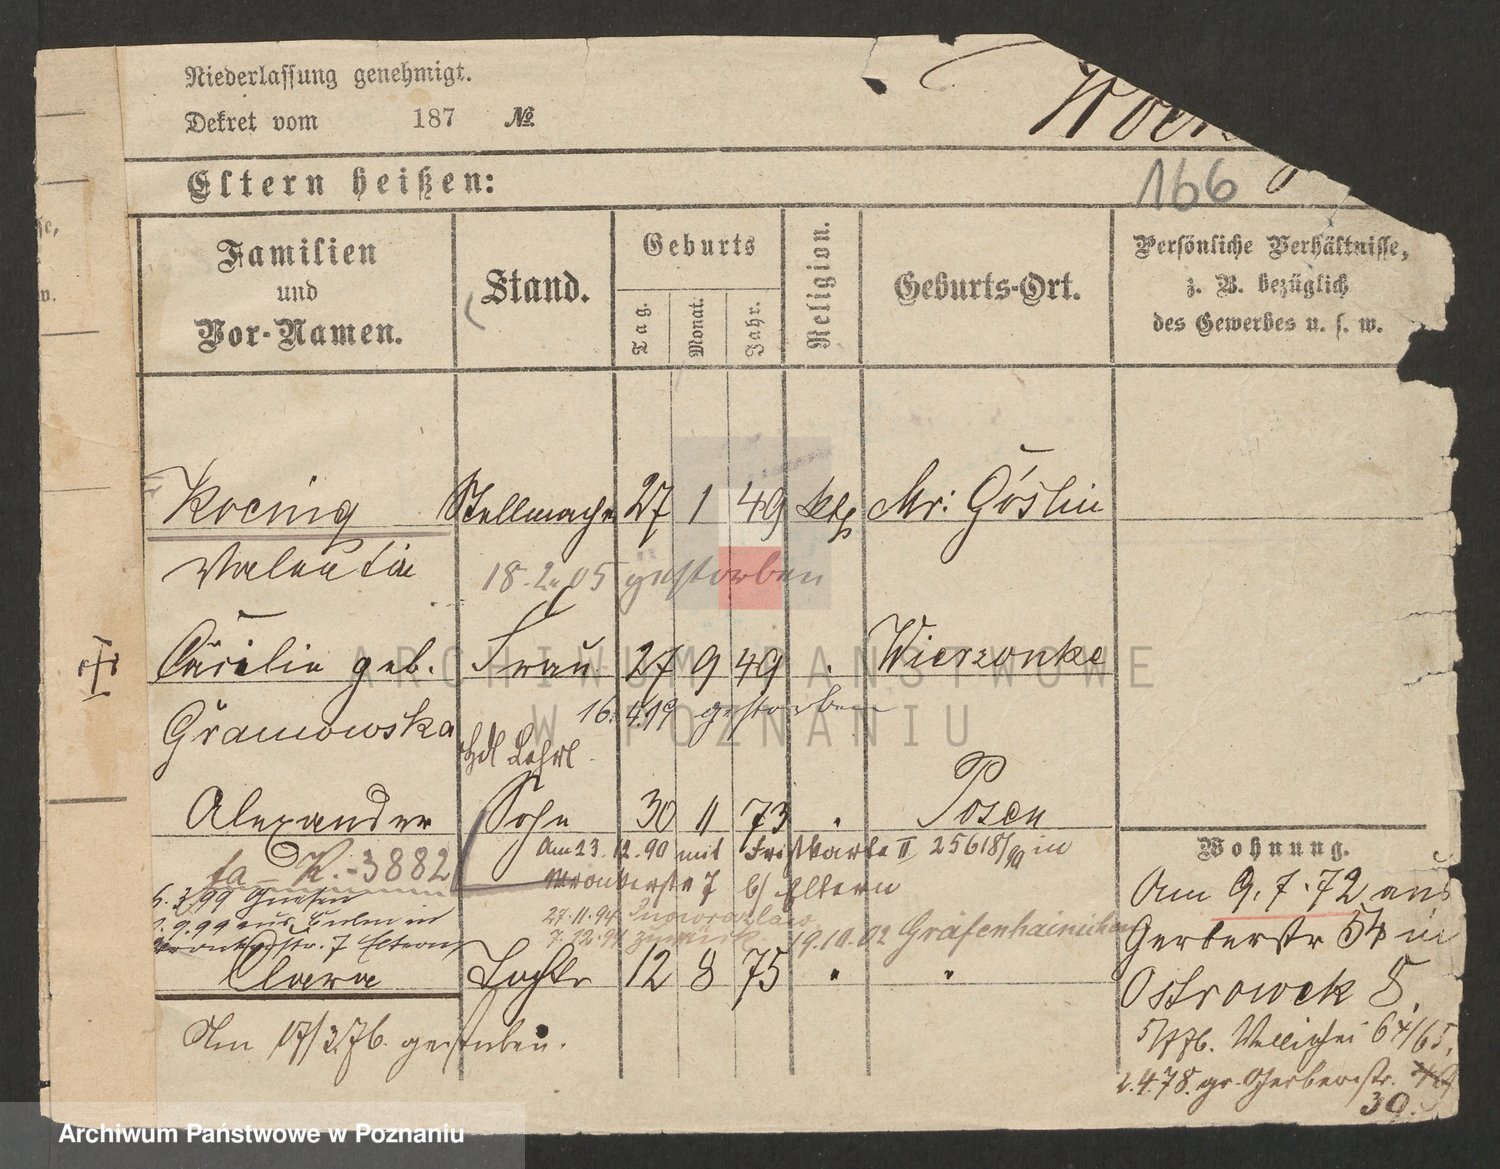 Niederlassung genehmigt.
Dekret vom 187 №
Koen
166
Eltern heißen:
Familien
und
Vor-Namen.
Stand.
Geburts
Tag.
Monat.
Jahr.
Religion.
Geburts-Ort.
Persönliche Verhältnisse,
z. B. bezüglich
des Gewerbes u. s. w.
Koenig Stellmacher 27 1 49 kth Mr: Goslin
Valentin
18.2.05 gestorben
Cäcilie geb. Frau 27 9 49 Wierzonke
Gramowska
16.4.19 gestorben
Hdl Lehrl.
Alexander Sohn 30 11 73 " Posen
fa – K. - 3882
Am 23.12.90 mit Fristkarte II 25618/90 in
Wronkerstr 7 b/ Eltern
5.2.99 Gnesen
.9.99 aus Berlin in
Wronkerstr. 7 Eltern
27.11.94 Inowrazlaw
7.12.94 zurück
19.10.02 Gräfenhainichen
Clara Tochter 12 8 75 " "
Am 17/3.76. gestorben.
Wohnung.
Am 9.7.72 aus
Gerberstr 54 in
Ostrowek 8.
5/776. Wallischei 64/65.
2.4.78. gr. Gerberstr. 49
39.
ARCHIWUM PAŃSTWOWE
W POZNANIU
Archiwum Państwowe w Poznaniu